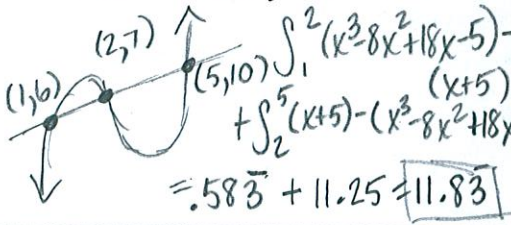 (2,7)
(1,6)
(5,10)
∫₁² (x³-8x²+18x-5)-
(x+5)
+∫₂⁵ (x+5)-(x³-8x²+18x
=.583̅ + 11.25 = 11.83̅